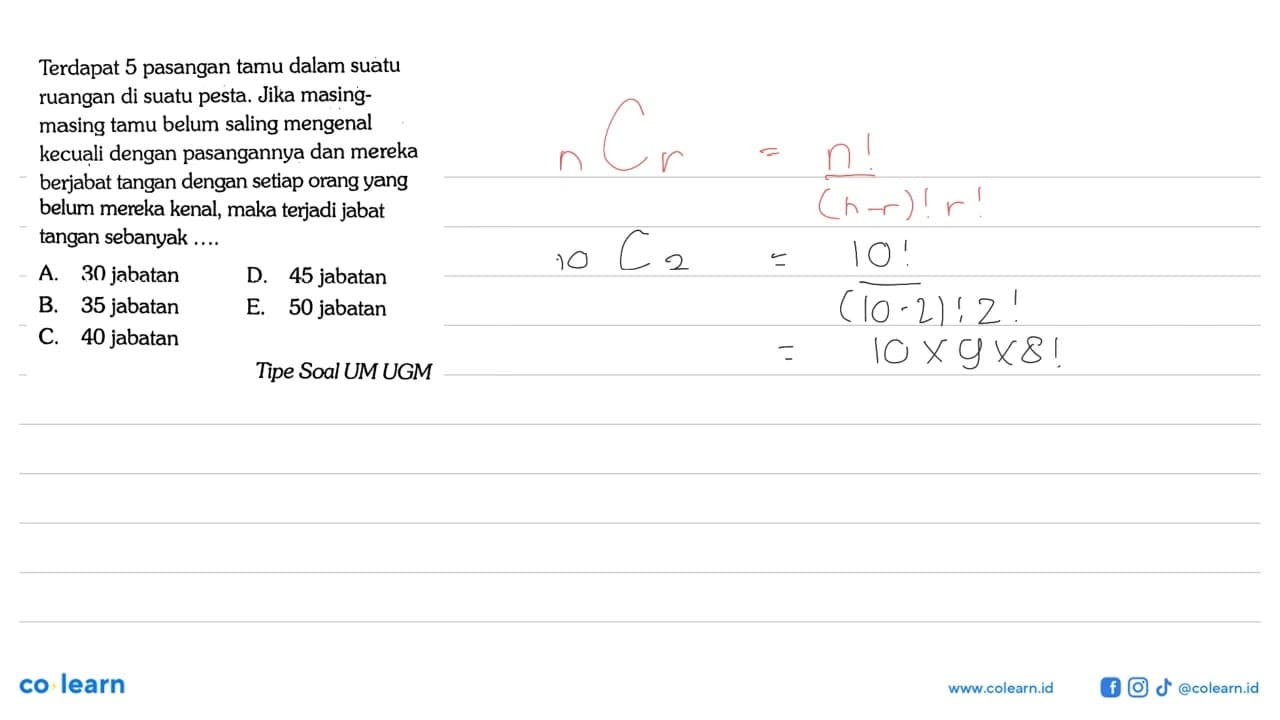 Terdapat 5 pasangan tamu dalam suatu
ruangan di suatu pesta. Jika masing-
masing tamu belum saling mengenal
kecuali dengan pasangannya dan mereka
berjabat tangan dengan setiap orang yang
belum mereka kenal, maka terjadi jabat
tangan sebanyak ....
A. 30 jabatan D. 45 jabatan
B. 35 jabatan E. 50 jabatan
C. 40 jabatan
Tipe Soal UM UGM
n C r = n!
(n-r)! r!
10 C 2 = 10!
(10-2)! 2!
= 10 x 9 x 8!
co learn
www.colearn.id
@colearn.id